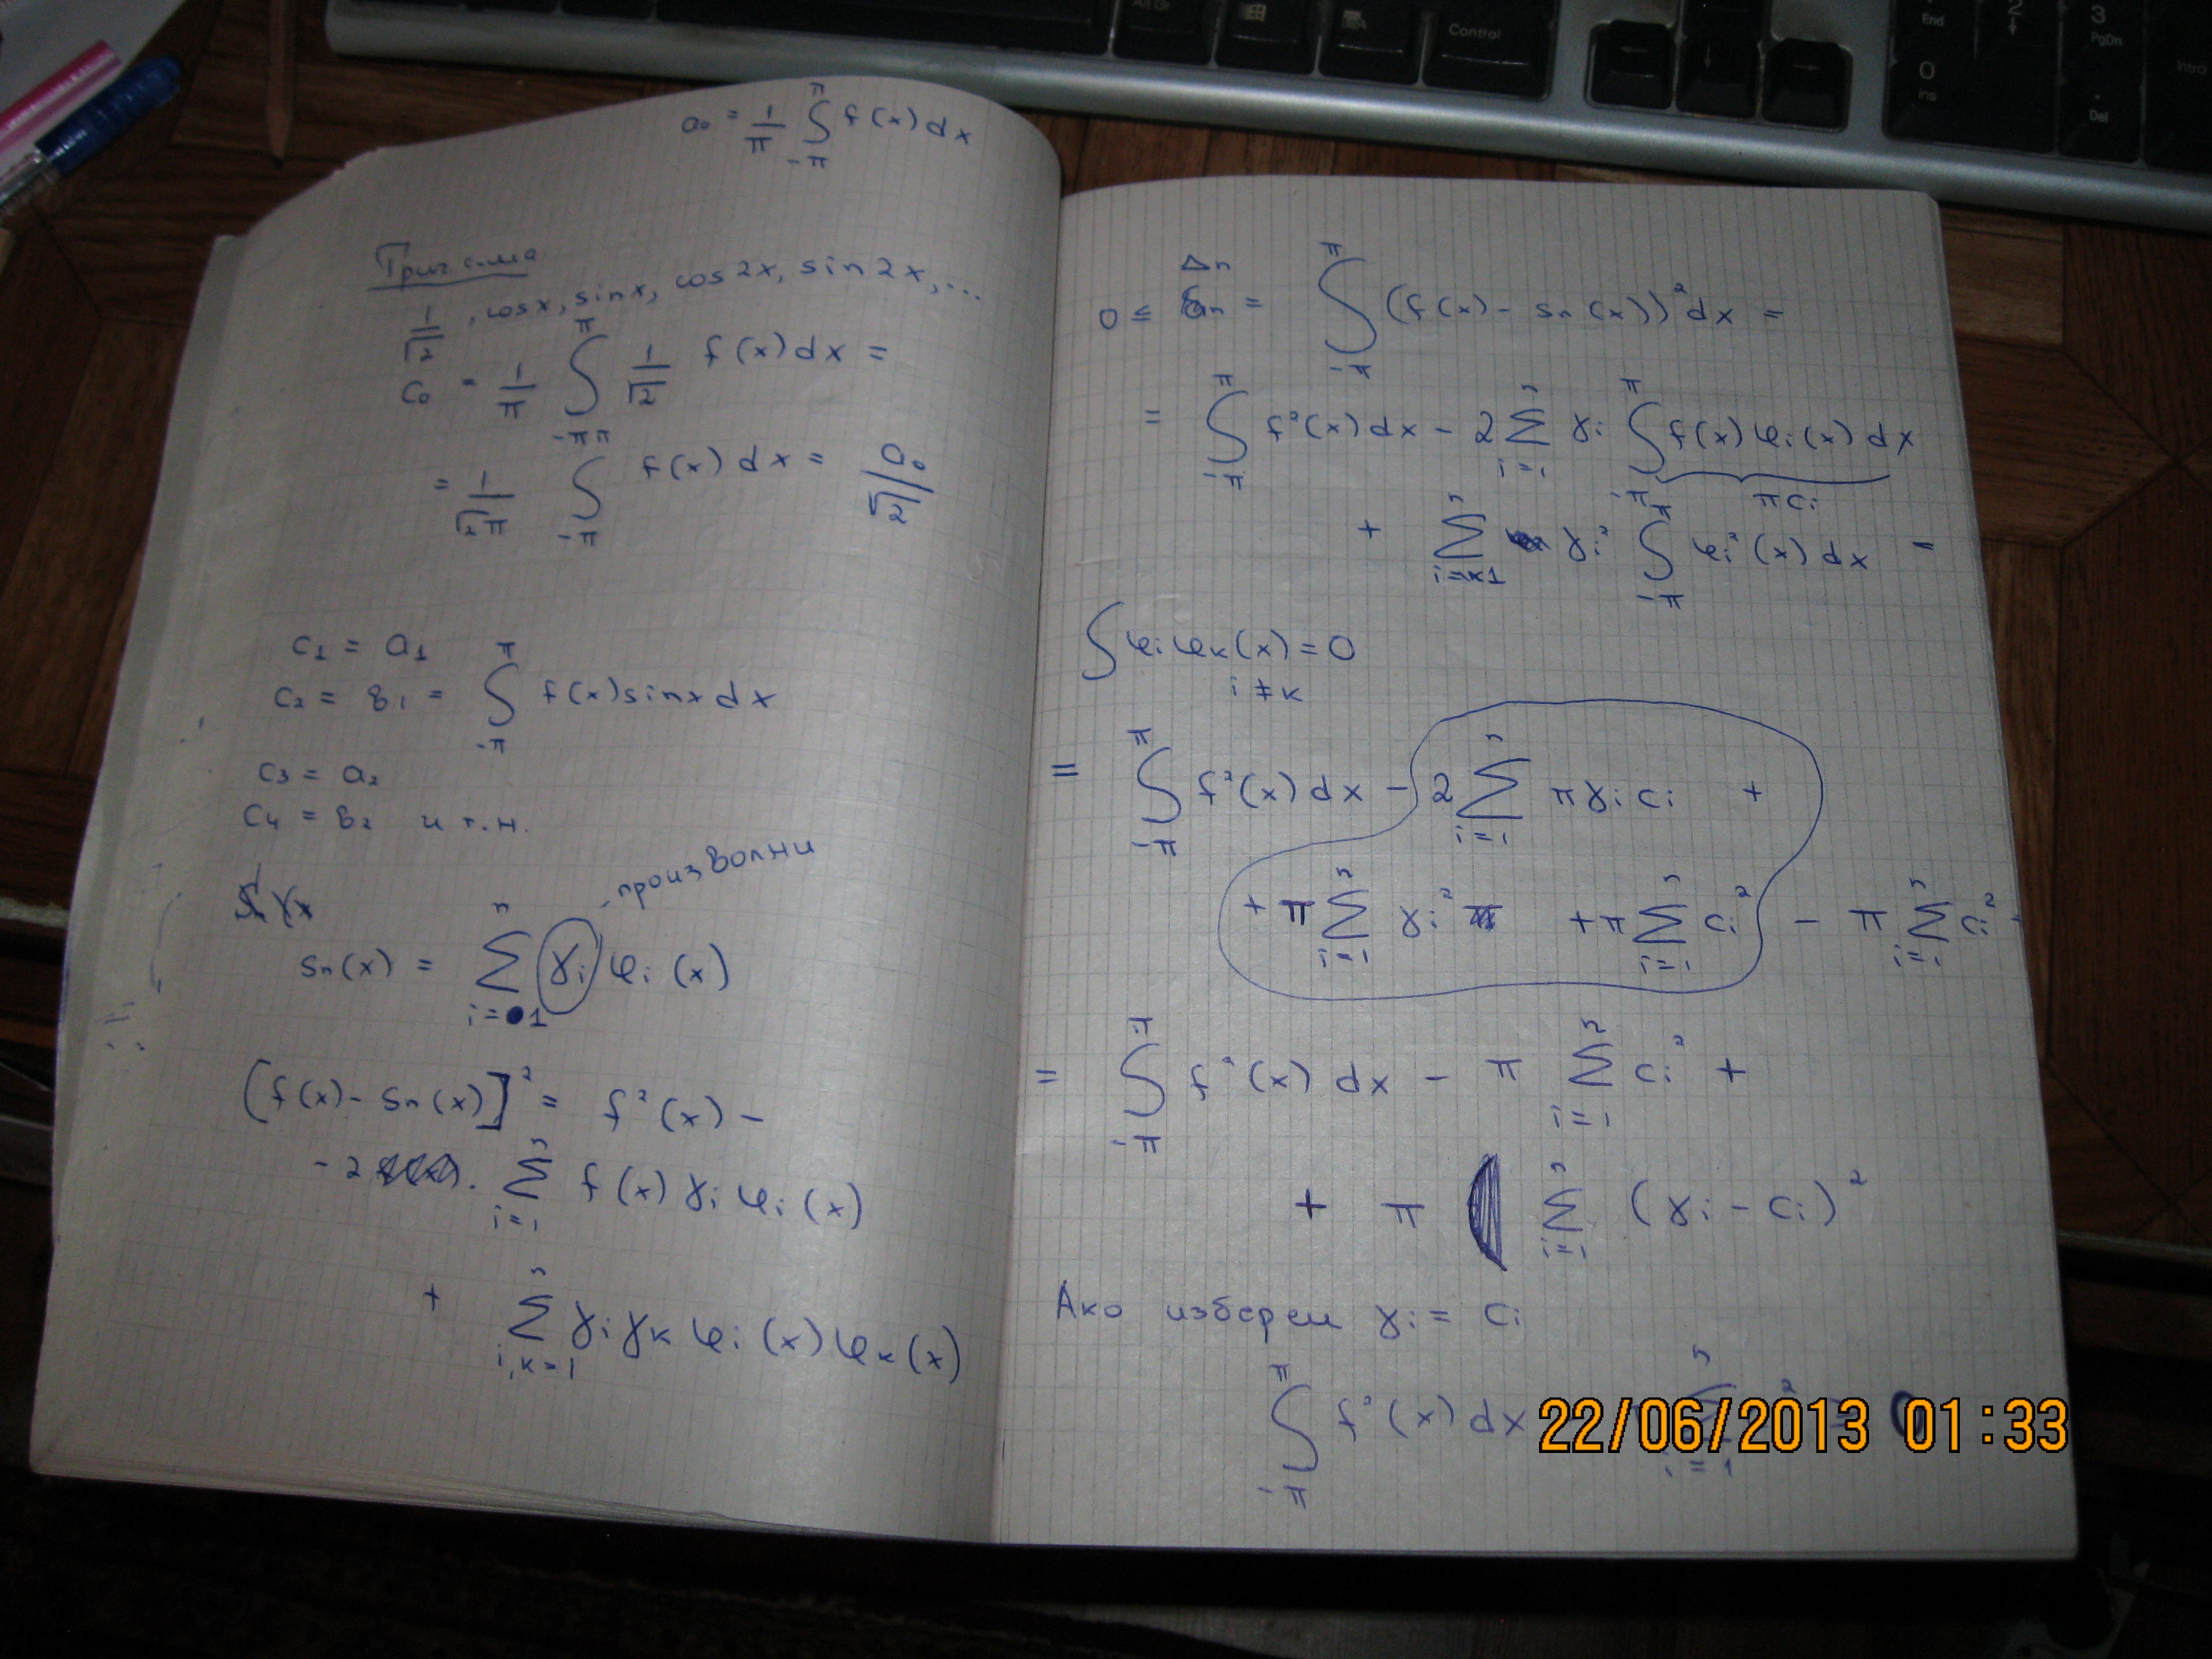 a₀ = 1/π ∫_{-π}^{π} f(x) dx
Триг с-ма
1/√2, cosx, sinx, cos2x, sin2x, ...
c₀ = 1/π ∫_{-π}^{π} 1/√2 f(x) dx =
= 1/(√2 π) ∫_{-π}^{π} f(x) dx = a₀/√2
c₁ = a₁
c₂ = b₁ = ∫_{-π}^{π} f(x) sinx dx
c₃ = a₂
c₄ = b₂ и т.н.
- произволни
sn(x) = ∑_{i=1}^{n} γi φi(x)
[f(x) - sn(x)]² = f²(x) -
- 2 . ∑_{i=1}^{n} f(x) γi φi(x)
+ ∑_{i,k=1}^{n} γi γk φi(x) φk(x)
0 ≤ Δn = ∫_{-π}^{π} (f(x) - sn(x))² dx =
= ∫_{-π}^{π} f²(x) dx - 2 ∑_{i=1}^{n} γi ∫_{-π}^{π} f(x) φi(x) dx
πci
+ ∑_{i=1}^{n} γi² ∫_{-π}^{π} φi²(x) dx =
∫ φi φk(x) = 0
i ≠ k
= ∫_{-π}^{π} f²(x) dx - 2 ∑_{i=1}^{n} π γi ci +
+ π ∑_{i=1}^{n} γi² + π ∑_{i=1}^{n} ci² - π ∑_{i=1}^{n} ci² -
= ∫_{-π}^{π} f²(x) dx - π ∑_{i=1}^{n} ci² +
+ π ∑_{i=1}^{n} (γi - ci)²
Ако изберем γi = ci
∫_{-π}^{π} f²(x) dx
22/06/2013 01:33
Alt Gr
Control
End
0
Ins
2
3
PgDn
.
Del
Intro